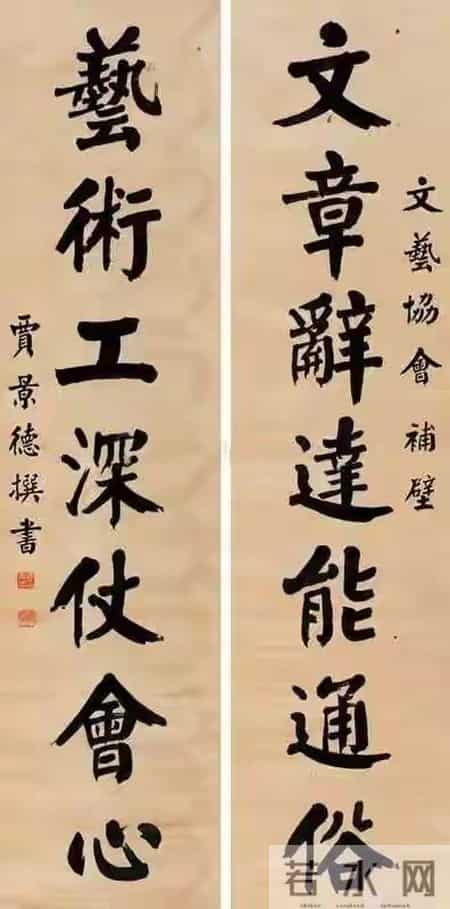 文藝協會補壁
文章辭達能通俗
藝術工深仗會心
賈景德撰書
若水网